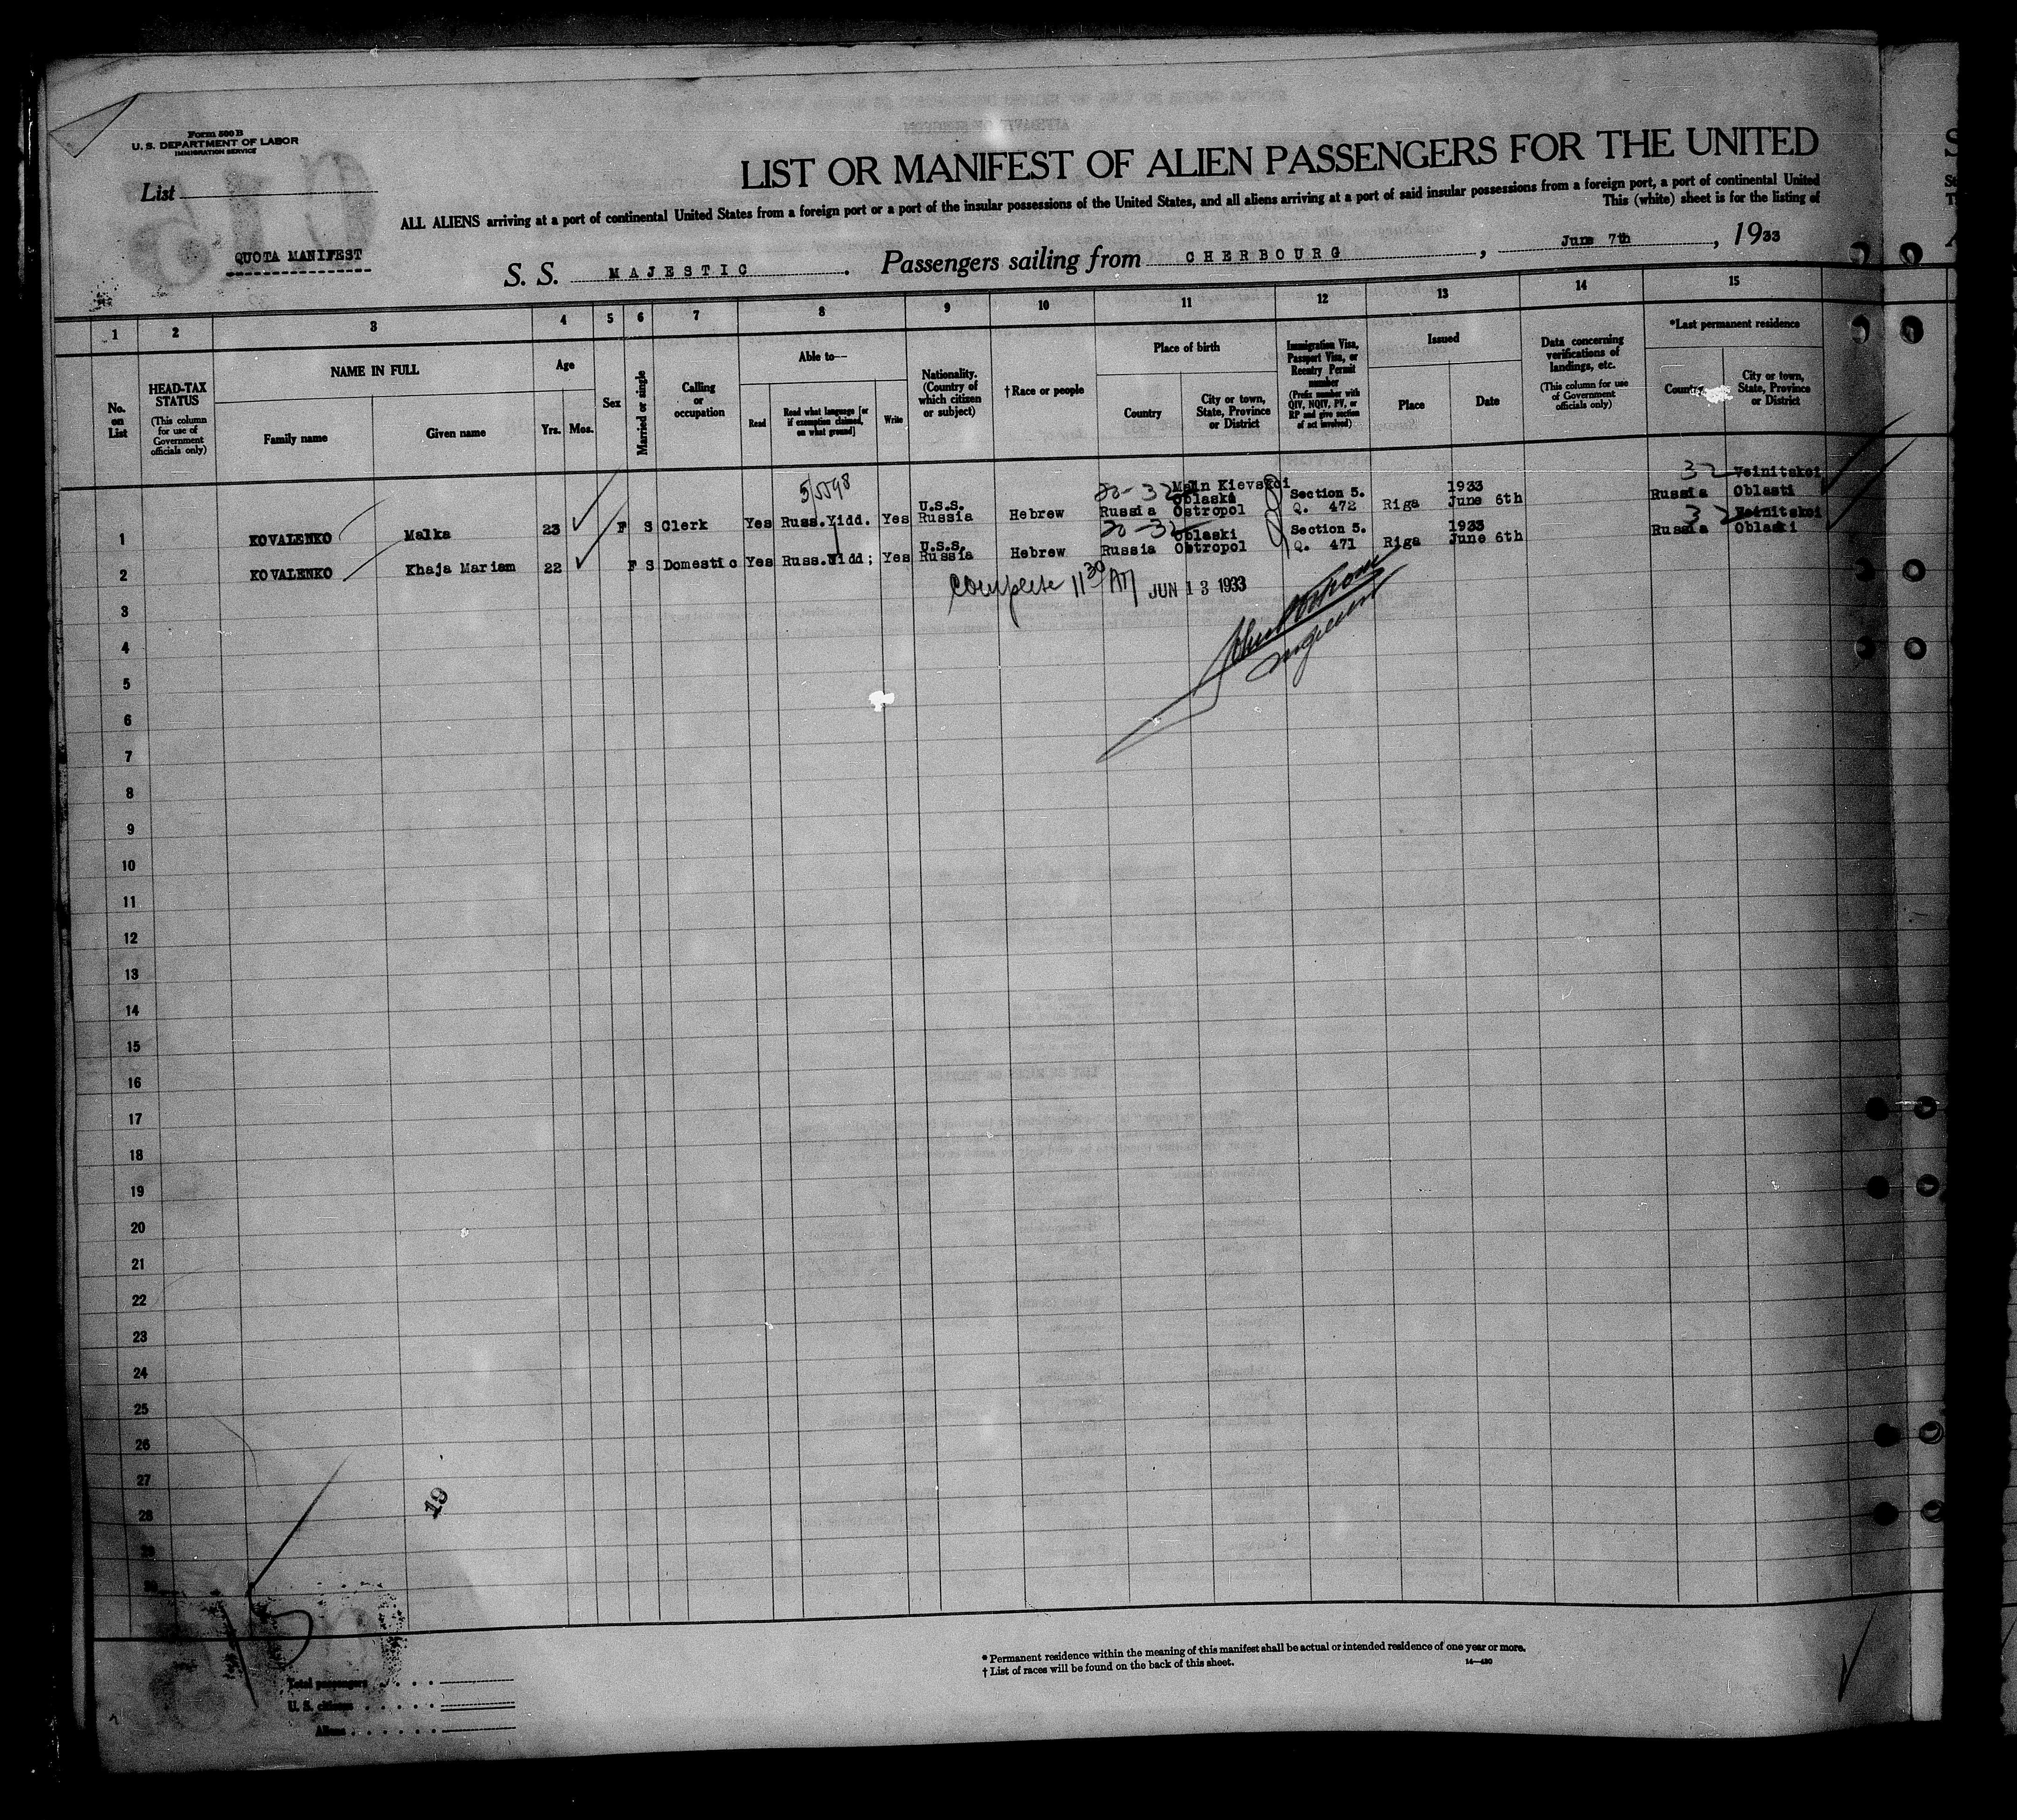 Form 500 B
U. S. DEPARTMENT OF LABOR
IMMIGRATION SERVICE
List
QUOTA MANIFEST
LIST OR MANIFEST OF ALIEN PASSENGERS FOR THE UNITED
ALL ALIENS arriving at a port of continental United States from a foreign port or a port of the insular possessions of the United States, and all aliens arriving at a port of said insular possessions from a foreign port, a port of continental United
This (white) sheet is for the listing of
S. S. MAJESTIC . Passengers sailing from CHERBOURG , June 7th , 1933
1 2 3 4 5 6 7 8 9 10 11 12 13 14 15
No. on List
HEAD-TAX STATUS
(This column for use of Government officials only)
NAME IN FULL
Family name
Given name
Age
Yrs. Mos.
Sex
Married or single
Calling or occupation
Able to—
Read
Read what language [or if exemption claimed, on what ground]
Write
Nationality. (Country of which citizen or subject)
†Race or people
Place of birth
Country
City or town, State, Province or District
Immigration Visa, Passport Visa, or Reentry Permit number
(Prefix number with QIV, NQIV, PV, or RP and give section of act involved)
Issued
Place
Date
Data concerning verifications of landings, etc.
(This column for use of Government officials only)
*Last permanent residence
Country
City or town, State, Province or District
1 KOVALENKO Malka 23 F S Clerk Yes Russ.Yidd. Yes U.S.S. Russia Hebrew Russia Kievskoi Oblaski Ostropol Section 5. Q. 472 Riga 1933 June 6th 32 Russia Veinitskoi Oblasti
2 KOVALENKO Khaja Mariem 22 F S Domestic Yes Russ.Yidd; Yes U.S.S. Russia Hebrew Russia Oblaski Ostropol Section 5. Q. 471 Riga 1933 June 6th 32 Russia Veinitskoi Oblaski
11 30 AM JUN 13 1933
3
4
5
6
7
8
9
10
11
12
13
14
15
16
17
18
19
20
21
22
23
24
25
26
27
28
29
30
19
Total passengers
U. S. citizens
Aliens
* Permanent residence within the meaning of this manifest shall be actual or intended residence of one year or more.
† List of races will be found on the back of this sheet.
14—420